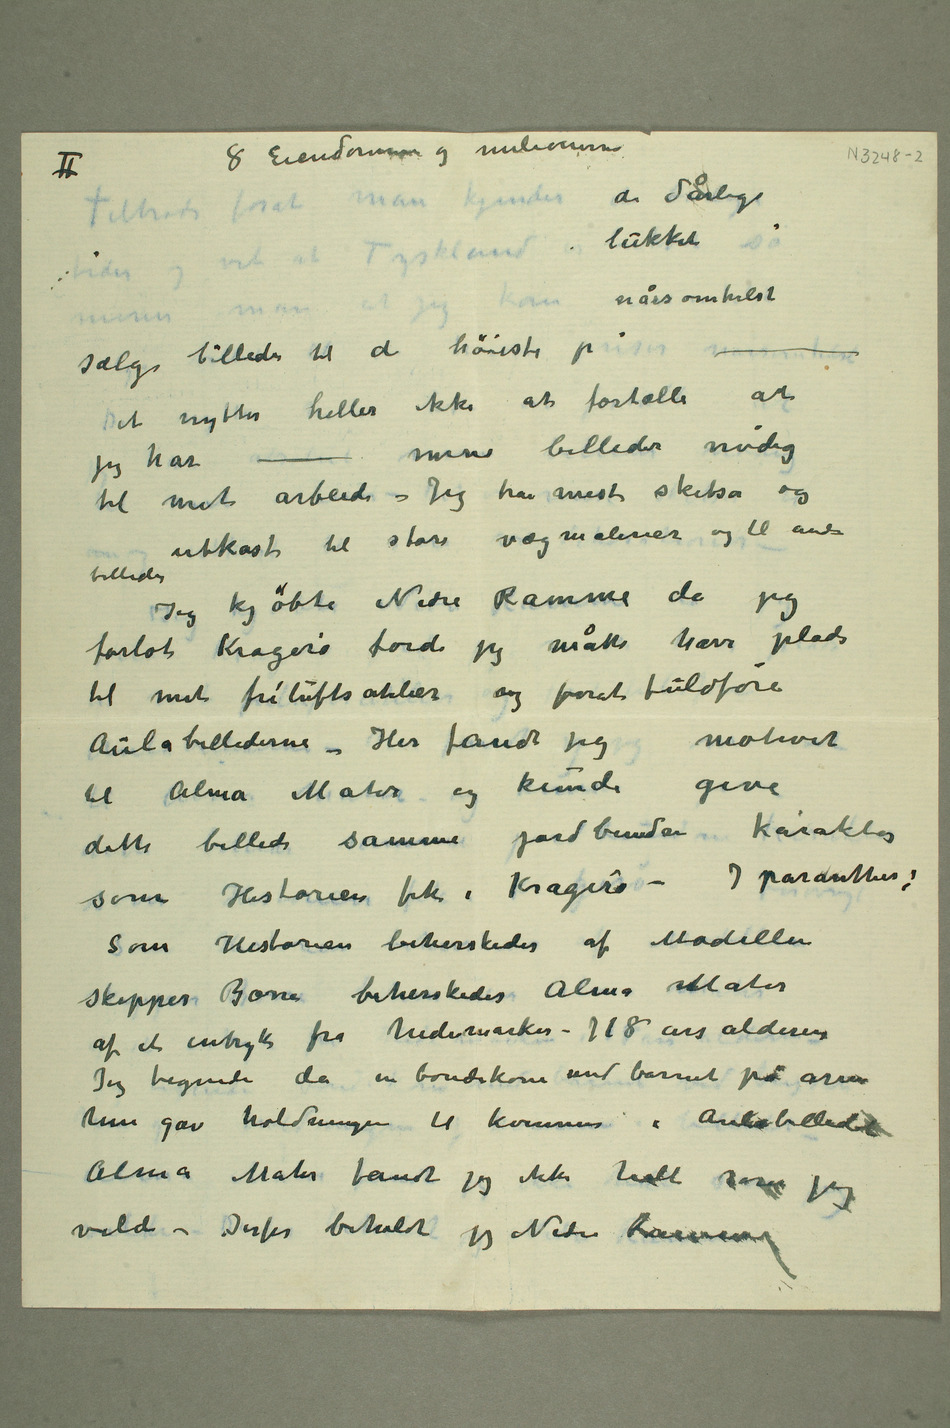 II 8 Eiendomme og millionerne N3248-2
Tiltrods forat man kjender de dårlige
tider og vet at Tyskland er lukket så
mener man at jeg kan nårsomhelst
sælge billeder til de höieste priser
Det nytter heller ikke at fortælle at
jeg har mine billeder nödig
til mit arbeide – Jeg har mest skitser og
utkast til store vægmalerier og til andre
billeder
Jeg kjöbte Nedre Ramme da jeg
forlot Kragerö fordi jeg måtte have plads
til mit friluftsatelier og forat fuldföre
Aulabillederne – Her fandt jeg motivet
til Alma Mater og kunde give
dette billede samme jordbundne karakter
som Historien fik i Kragerö – I paranthes:
Som Historien beherskedes af Modellen
skipper Börre beherskedes Alma Mater
af et indtryk fra hedemarken – I 18 års alderen
Jeg tegnede da en bondekone med barnet på armen
hun gav holdningen til kvinnen i Aulabilledet
Alma Mater fandt jeg ikke helt som jeg
vilde – Derfor beholdt jeg Nedre Ramme